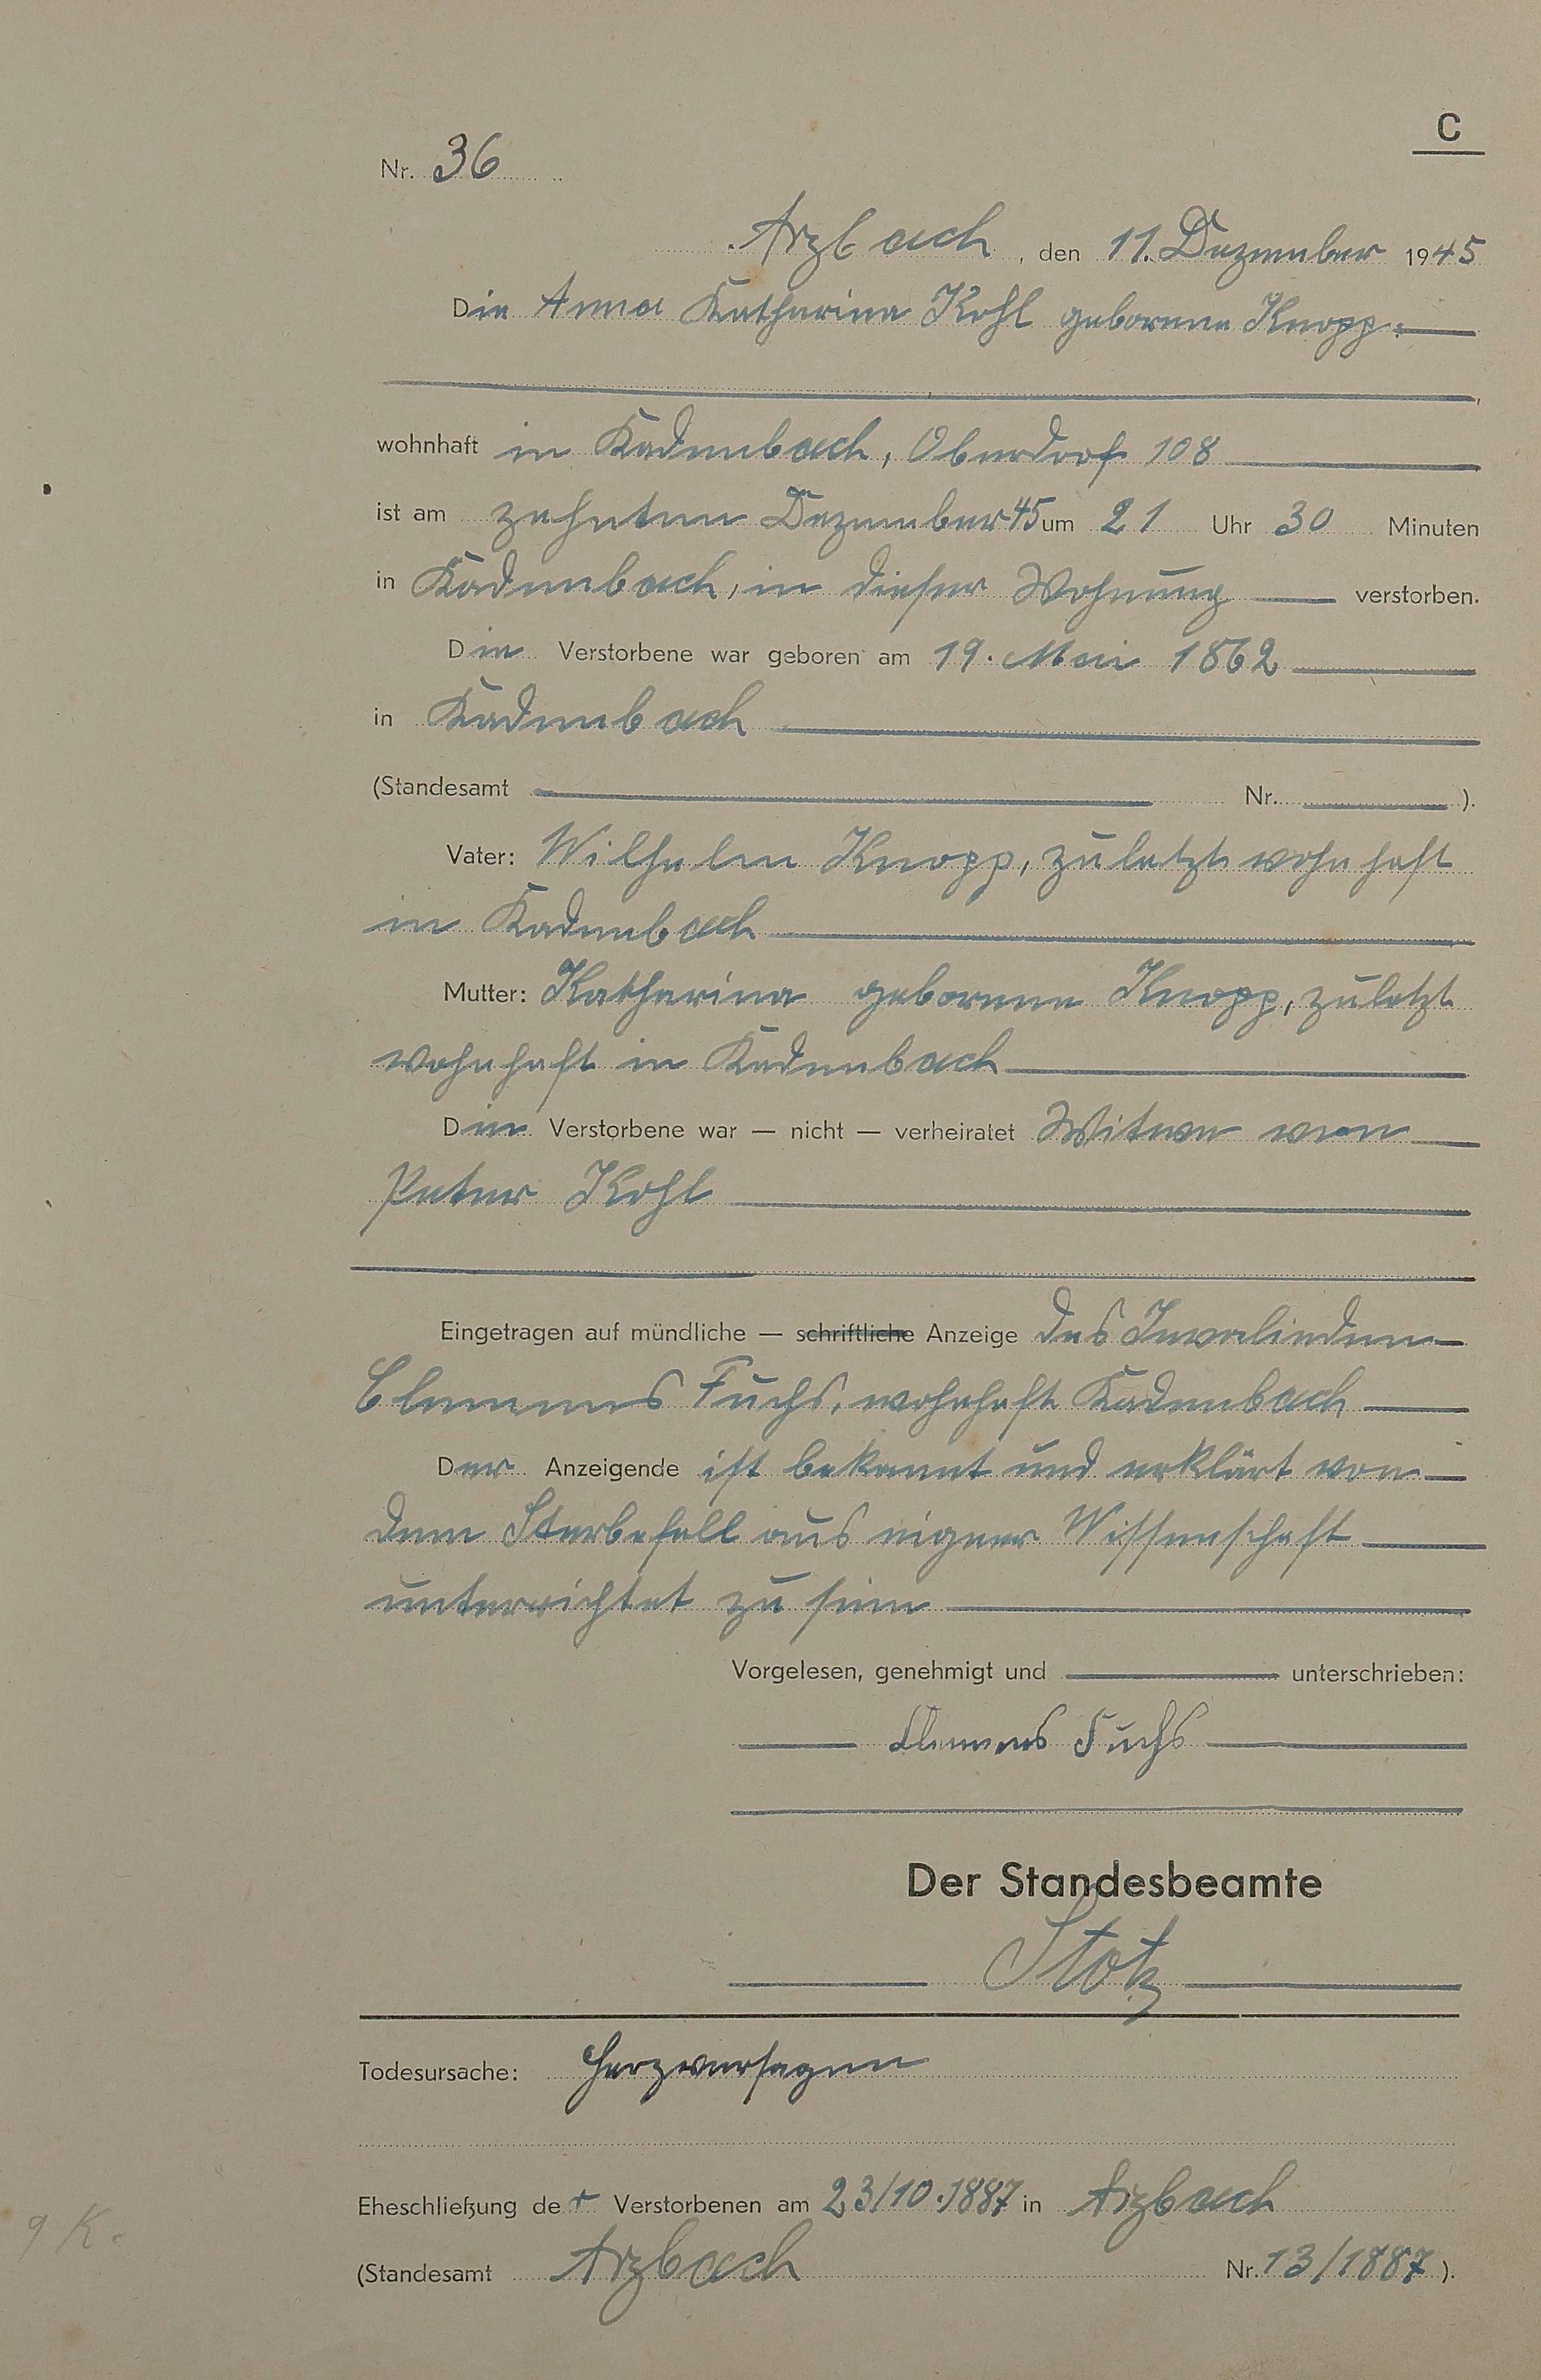 C
Nr. 36
Arzbach, den 11. Dezember 1945
Die Anna Katharina Kohl geborene Knopp
wohnhaft in Kadenbach, Oberdorf 108
ist am zehnten Dezember 45 um 21 Uhr 30 Minuten
in Kadenbach, in dieser Wohnung verstorben.
Die Verstorbene war geboren am 19. Mai 1862
in Kadenbach
(Standesamt Nr. ).
Vater: Wilhelm Knopp, zuletzt wohnhaft
in Kadenbach
Mutter: Katharina geborene Knopp, zuletzt
wohnhaft in Kadenbach
Die Verstorbene war — nicht — verheiratet Witwe von
Peter Kohl
Eingetragen auf mündliche — schriftliche Anzeige des Invalieden
Clemens Fuchs, wohnhaft Kadenbach
Der Anzeigende ist bekannt und erklärt von
dem Sterbefall aus eigner Wissenschaft
unterrichtet zu sein
Vorgelesen, genehmigt und unterschrieben:
Clemens Fuchs
Der Standesbeamte
Stotz
Todesursache: Herzversagen
Eheschließung der Verstorbenen am 23/10.1887 in Arzbach
9 K.
(Standesamt Arzbach Nr. 13/1887).